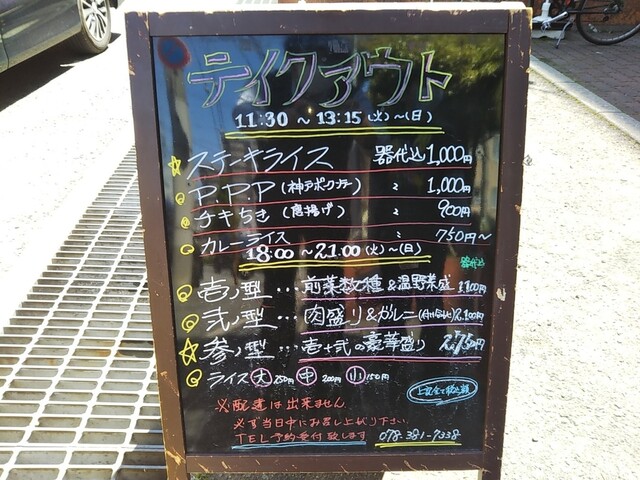 テイクアウト
11:30 ~ 13:15 (火)~(日)
ステーキライス 器代込 1,000円
P.P.P (神戸ポークソテー) 〃 1,000円
チキちき (唐揚げ) 〃 900円
カレーライス 〃 750円~
18:00 ~ 21:00 (火)~(日)
器代込
壱ノ型…前菜数種&温野菜盛 2,100円
弐ノ型…肉盛り&ガルニ 2,100円
参ノ型…壱+弐の豪華盛り 2,750円
ライス 大 250円 中 200円 小 150円
上記全て税込価
※配達は出来ません
必ず当日中にお召し上がり下さい。
TEL予約受付致します 078-381-7338